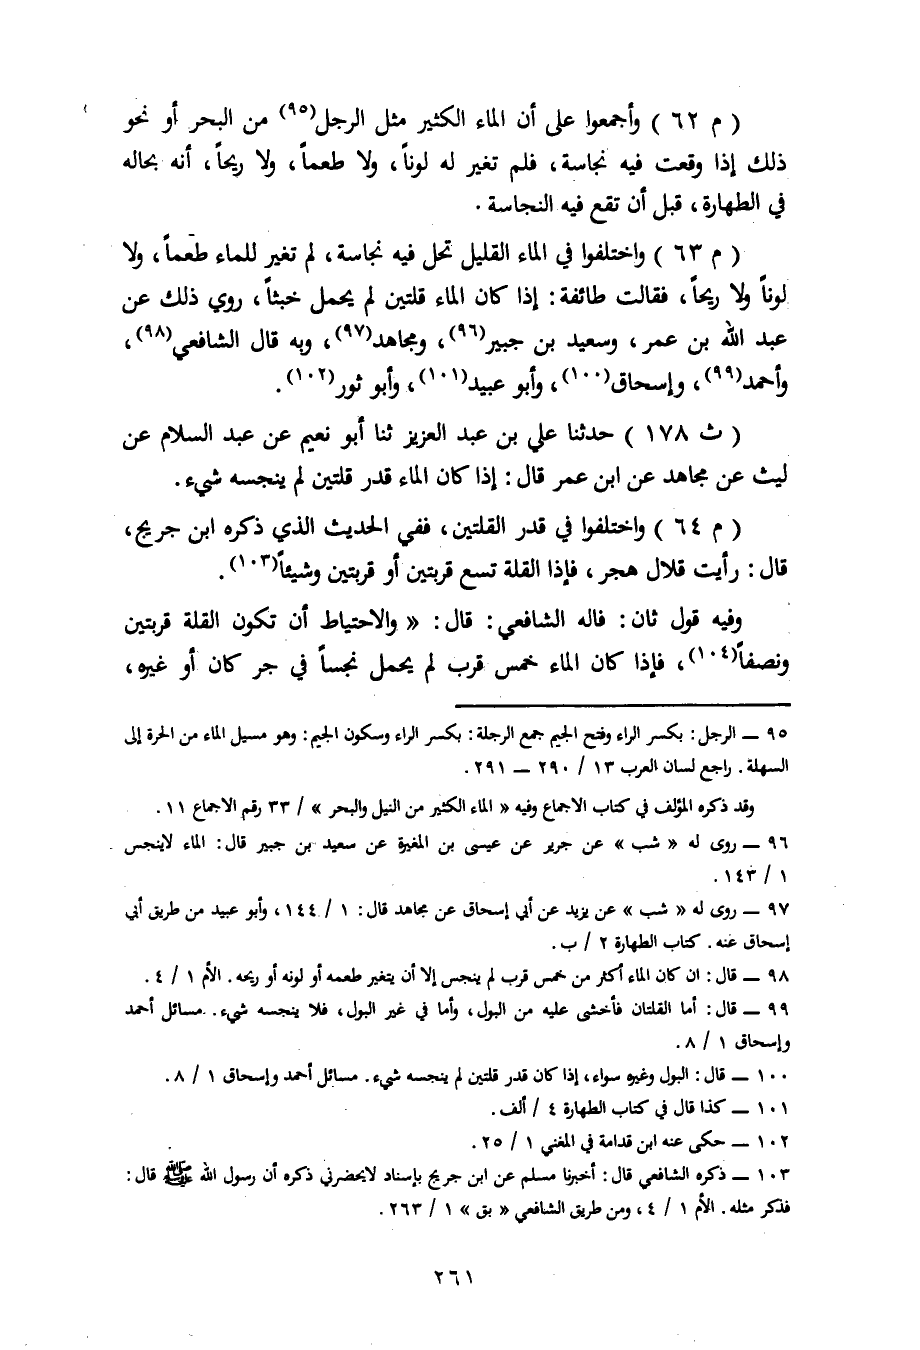 ( م ٦٢ ) وأجمعوا على أن الماء الكثير مثل الرجل(٩٥) من البحر أو نحو
ذلك إذا وقعت فيه نجاسة ، فلم تغير له لوناً ، ولا طعماً ، ولا ريحاً ، أنه بحاله
في الطهارة ، قبل أن تقع فيه النجاسة .
( م ٦٣ ) واختلفوا في الماء القليل تحل فيه نجاسة ، لم تغير للماء طعماً ، ولا
لوناً ولا ريحاً ، فقالت طائفة : إذا كان الماء قلتين لم يحمل خبثاً ، روي ذلك عن
عبد الله بن عمر ، وسعيد بن جبير(٩٦) ، ومجاهد(٩٧) ، وبه قال الشافعي(٩٨) ،
وأحمد(٩٩) ، وإسحاق(١٠٠) ، وأبو عبيد(١٠١) ، وأبو ثور(١٠٢) .
( ث ١٧٨ ) حدثنا علي بن عبد العزيز ثنا أبو نعيم عن عبد السلام عن
ليث عن مجاهد عن ابن عمر قال : إذا كان الماء قدر قلتين لم ينجسه شيء .
( م ٦٤ ) واختلفوا في قدر القلتين ، ففي الحديث الذي ذكره ابن جريج ،
قال : رأيت قلال هجر ، فإذا القلة تسع قربتين أو قربتين وشيئاً(١٠٣) .
وفيه قول ثان : قاله الشافعي : قال : « والاحتياط أن تكون القلة قربتين
ونصفاً(١٠٤) ، فإذا كان الماء خمس قرب لم يحمل نجساً في جر كان أو غيره ،
٩٥ ــ الرجل : بكسر الراء وفتح الجيم جمع الرجلة : بكسر الراء وسكون الجيم : وهو مسيل الماء من الحرة إلى
السهلة . راجع لسان العرب ١٣ / ٢٩٠ ــ ٢٩١ .
وقد ذكره المؤلف في كتاب الاجماع وفيه « الماء الكثير من النيل والبحر » / ٣٣ رقم الاجماع ١١ .
٩٦ ــ روى له « شب » عن جرير عن عيسى بن المغيرة عن سعيد بن جبير قال : الماء لاينجس
١ / ١٤٣ .
٩٧ ــ روى له « شب » عن يزيد عن أبي إسحاق عن مجاهد قال : ١ / ١٤٤ ، وأبو عبيد من طريق أبي
إسحاق عنه . كتاب الطهارة ٢ / ب .
٩٨ ــ قال : ان كان الماء أكثر من خمس قرب لم ينجس إلا أن يتغير طعمه أو لونه أو ريحه . الأم ١ / ٤ .
٩٩ ــ قال : أما القلتان فأخشى عليه من البول ، وأما في غير البول ، فلا ينجسه شيء . مسائل أحمد
وإسحاق ١ / ٨ .
١٠٠ ــ قال : البول وغيره سواء ، إذا كان قدر قلتين لم ينجسه شيء . مسائل أحمد وإسحاق ١ / ٨ .
١٠١ ــ كذا قال في كتاب الطهارة ٤ / ألف .
١٠٢ ــ حكى عنه ابن قدامة في المغني ١ / ٢٥ .
١٠٣ ــ ذكره الشافعي قال : أخبرنا مسلم عن ابن جريج بإسناد لايحضرني ذكره أن رسول الله ﷺ قال :
فذكر مثله . الأم ١ / ٤ ، ومن طريق الشافعي « بق » ١ / ٢٦٣ .
٢٦١